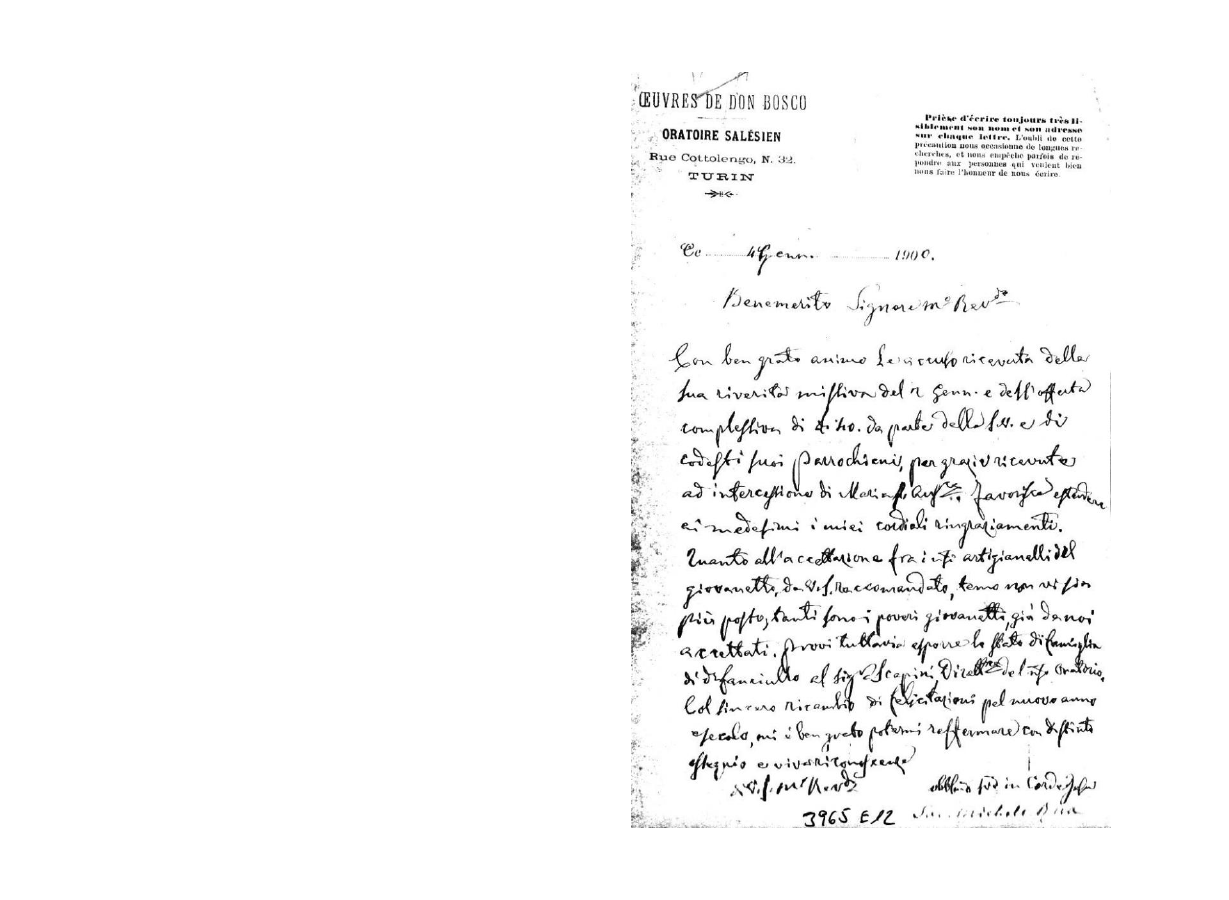 ŒUVRES DE DON BOSCO
ORATOIRE SALÉSIEN
Rue Cottolengo, N. 32.
TURIN
Prière d'écrire toujours très li-
siblement son nom et son adresse
sur chaque lettre. L'oubli de cette
précaution nous occasionne de longues re-
cherches, et nous empêche parfois de ré-
pondre aux personnes qui veulent bien
nous faire l'honneur de nous écrire.
Ce 4 Genn. 1900.
Benemerito Signore m.o Rev.do
Con ben grato animo Le accuso ricevuta della
sua riverita missiva del 2 Genn. e dell'offerta
complessiva di da parte della S.V. e di
codesti suoi Parrochiani, per grazie ricevute
ad intercessione di Maria Favorisca estendere
ai medesimi i miei cordiali ringraziamenti.
Quanto all'accettazione fra i artigianelli del
giovanetto, da V.S. raccomandato, temo non vi sia
più posto, tanti sono i poveri giovanetti, già da noi
accettati. Provi tuttavia esporre lo stato di famiglia
di fanciullo al sig. Scapini Oratorio.
Col sincero ricambio di felicitazioni pel nuovo anno
e secolo, mi è ben grato potermi raffermare con distinto
ossequio e viva riconoscenza
V.S. m.o Rev.da
in Corde Jesu
Sac. Michele Rua
3965 E12